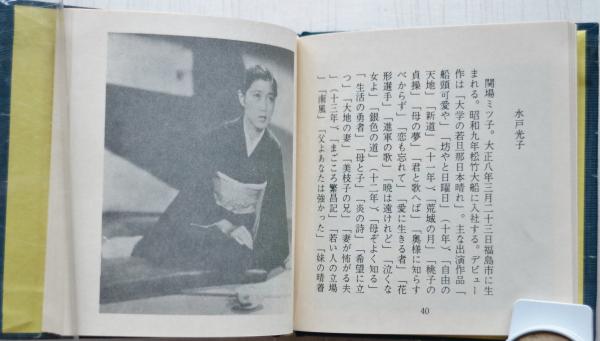 水戸光子
関場ミツ子。大正八年三月二十三日福島市に生
まれる。昭和九年松竹大船に入社する。デビュー
作は「大学の若旦那日本晴れ」。主な出演作品「
船頭可愛や」「坊やと日曜日」（十年）、「自由の
天地」「新道」（十一年）、「荒城の月」「桃子の
貞操」「母の夢」「君と歌へば」「奥様に知らす
べからず」「恋も忘れて」「愛に生きる者」「花
形選手」「進軍の歌」「暁は遠けれど」「泣くな
女よ」「銀色の道」（十二年）、「母ぞよく知る」
「生活の勇者」「母と子」「炎の詩」「希望に立
つ」「大地の妻」「美枝子の兄」「妻が怖がる夫
」（十三年）、「まごころ繁昌記」「若い人の立場
」「南風」「父よあなたは強かった」「妹の晴着
40